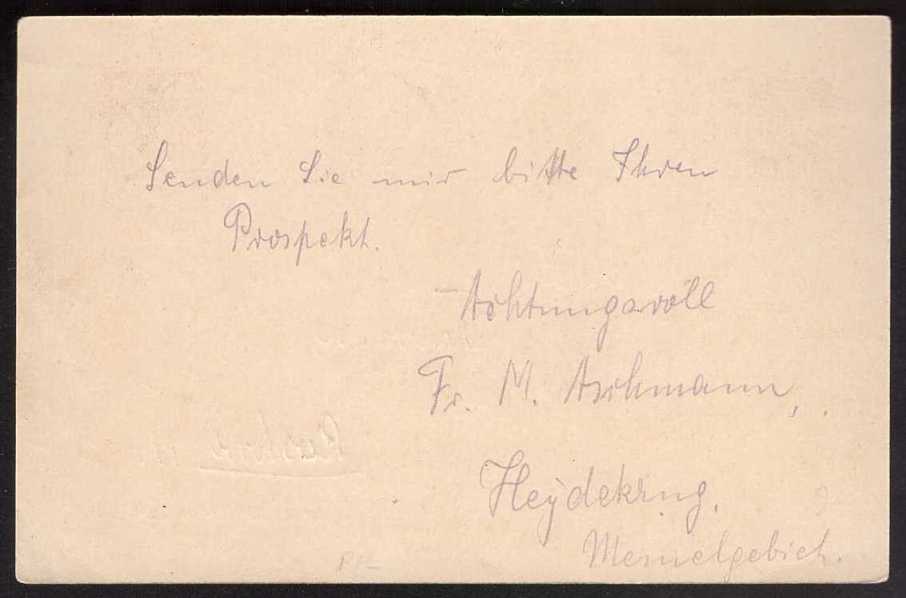 Senden Sie mir bitte Ihren
Prospekt.
Achtungsvoll
Fr. M. Aschmann,
Heydekrug.
Memelgebiet.